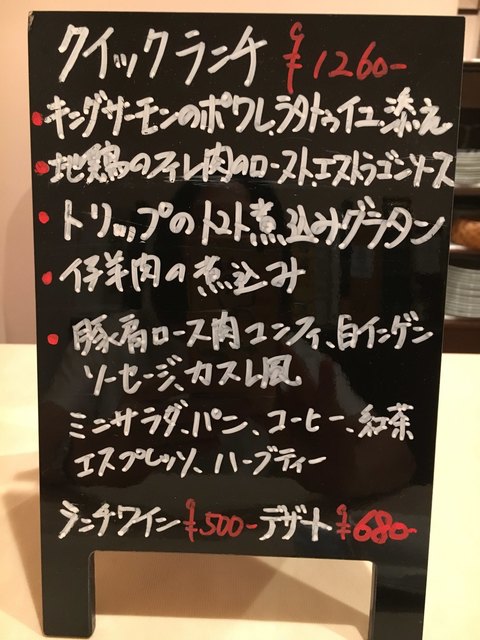 クイックランチ ¥1260-
・キングサーモンのポワレ、ラタトゥイユ添え
・地鶏のフィレ肉のロースト、エストラゴンソース
・トリップのトマト煮込みグラタン
・仔羊肉の煮込み
・豚肩ロース肉コンフィ、白インゲン
ソーセージ、カスレ風
ミニサラダ、パン、コーヒー、紅茶
エスプレッソ、ハーブティー
ランチワイン ¥500- デザート ¥680-